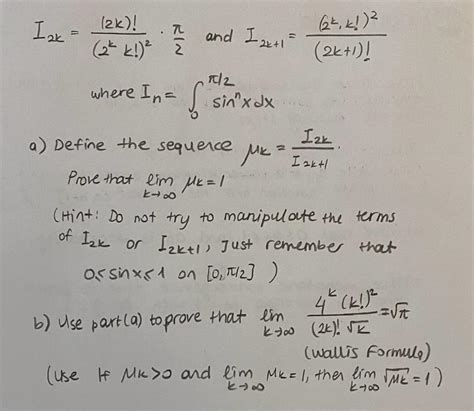 I_{2k} = \frac{(2k)!}{(2^k k!)^2} \cdot \frac{π}{2} and I_{2k+1} = \frac{(2^k, k!)^2}{(2k+1)!}
where I_n = ∫_0^{π/2} sin^n x dx
a) Define the sequence μ_k = \frac{I_{2k}}{I_{2k+1}}.
Prove that lim_{k→∞} μ_k = 1
(Hint: Do not try to manipulate the terms
of I_{2k} or I_{2k+1}, Just remember that
0 ≤ sin x ≤ 1 on [0, π/2] )
b) Use part (a) to prove that lim_{k→∞} \frac{4^k (k!)^2}{(2k)! √k} = √π
(Wallis Formula)
(Use If μ_k > 0 and lim_{k→∞} μ_k = 1, then lim_{k→∞} √μ_k = 1)